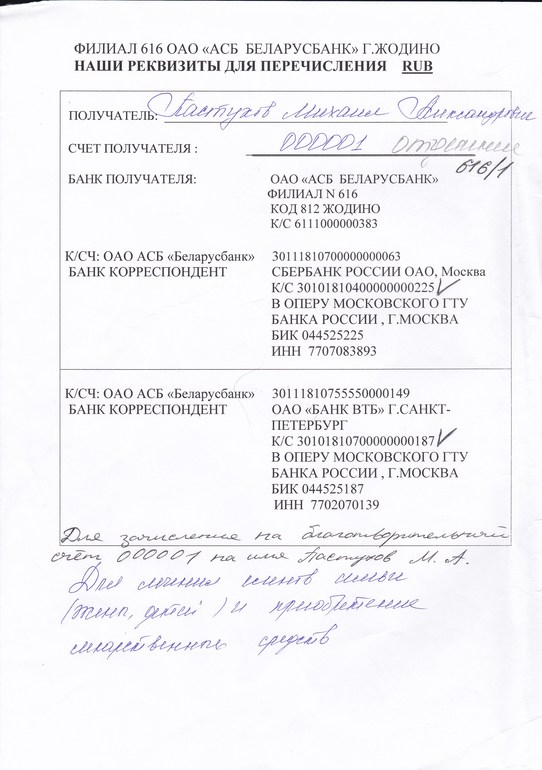 ФИЛИАЛ 616 ОАО «АСБ БЕЛАРУСБАНК» Г.ЖОДИНО
НАШИ РЕКВИЗИТЫ ДЛЯ ПЕРЕЧИСЛЕНИЯ RUB
ПОЛУЧАТЕЛЬ: Пастухов Михаил Александрович
СЧЕТ ПОЛУЧАТЕЛЯ : 000001 Отделение
616/1
БАНК ПОЛУЧАТЕЛЯ: ОАО «АСБ БЕЛАРУСБАНК»
ФИЛИАЛ N 616
КОД 812 ЖОДИНО
К/С 6111000000383
К/СЧ: ОАО АСБ «Беларусбанк» 30111810700000000063
БАНК КОРРЕСПОНДЕНТ СБЕРБАНК РОССИИ ОАО, Москва
К/С 30101810400000000225
В ОПЕРУ МОСКОВСКОГО ГТУ
БАНКА РОССИИ , Г.МОСКВА
БИК 044525225
ИНН 7707083893
К/СЧ: ОАО АСБ «Беларусбанк» 30111810755550000149
БАНК КОРРЕСПОНДЕНТ ОАО «БАНК ВТБ» Г.САНКТ-
ПЕТЕРБУРГ
К/С 30101810700000000187
В ОПЕРУ МОСКОВСКОГО ГТУ
БАНКА РОССИИ , Г.МОСКВА
БИК 044525187
ИНН 7702070139
Для зачисление на благотворительный
счёт 000001 на имя Пастухов М. А.
Для семьи
(жена, детей) и приобретение
лекарственного средств